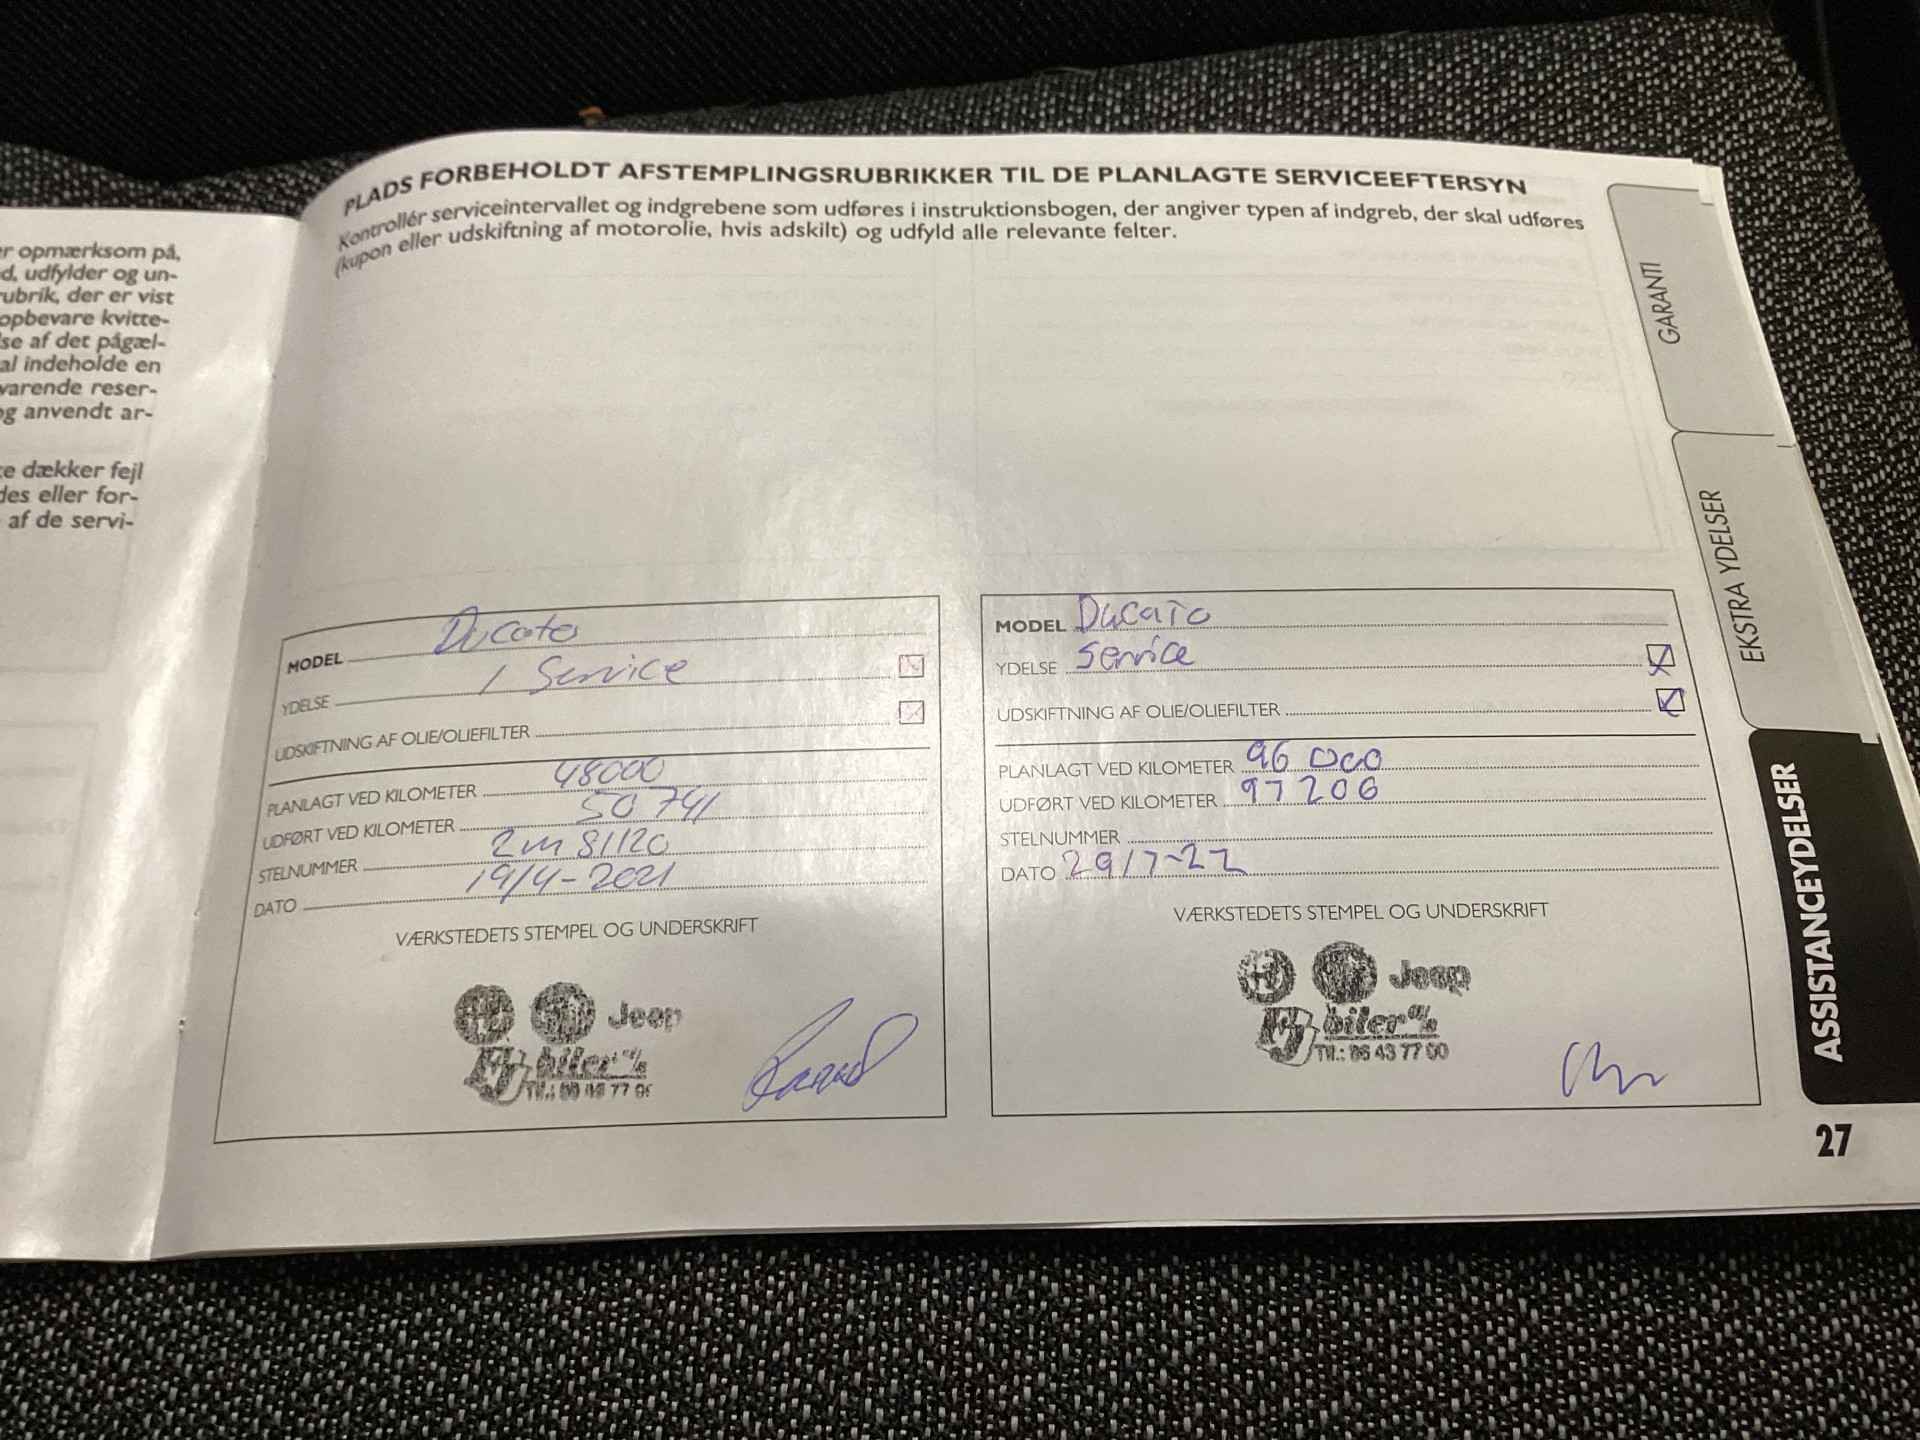 r opmærksom på,
d, udfylder og un-
rubrik, der er vist
opbevare kvitte-
se af det pågæl-
al indeholde en
varende reser-
og anvendt ar-
te dækker fejl
des eller for-
af de servi-
PLADS FORBEHOLDT AFSTEMPLINGSRUBRIKKER TIL DE PLANLAGTE SERVICEEFTERSYN
Kontrollér serviceintervallet og indgrebene som udføres i instruktionsbogen, der angiver typen af indgreb, der skal udføres
(kupon eller udskiftning af motorolie, hvis adskilt) og udfyld alle relevante felter.
MODEL Ducato
YDELSE 1 Service
UDSKIFTNING AF OLIE/OLIEFILTER
PLANLAGT VED KILOMETER 48000
UDFØRT VED KILOMETER 50741
STELNUMMER 2m81120
DATO 19/4-2021
VÆRKSTEDETS STEMPEL OG UNDERSKRIFT
Jeep
biler a/s
MODEL Ducato
YDELSE Service
UDSKIFTNING AF OLIE/OLIEFILTER
PLANLAGT VED KILOMETER 96 000
UDFØRT VED KILOMETER 97206
STELNUMMER
DATO 29/7-22
VÆRKSTEDETS STEMPEL OG UNDERSKRIFT
Jeep
biler a/s
Tlf.: 86 43 77 00
GARANTI
EKSTRA YDELSER
ASSISTANCEYDELSER
27